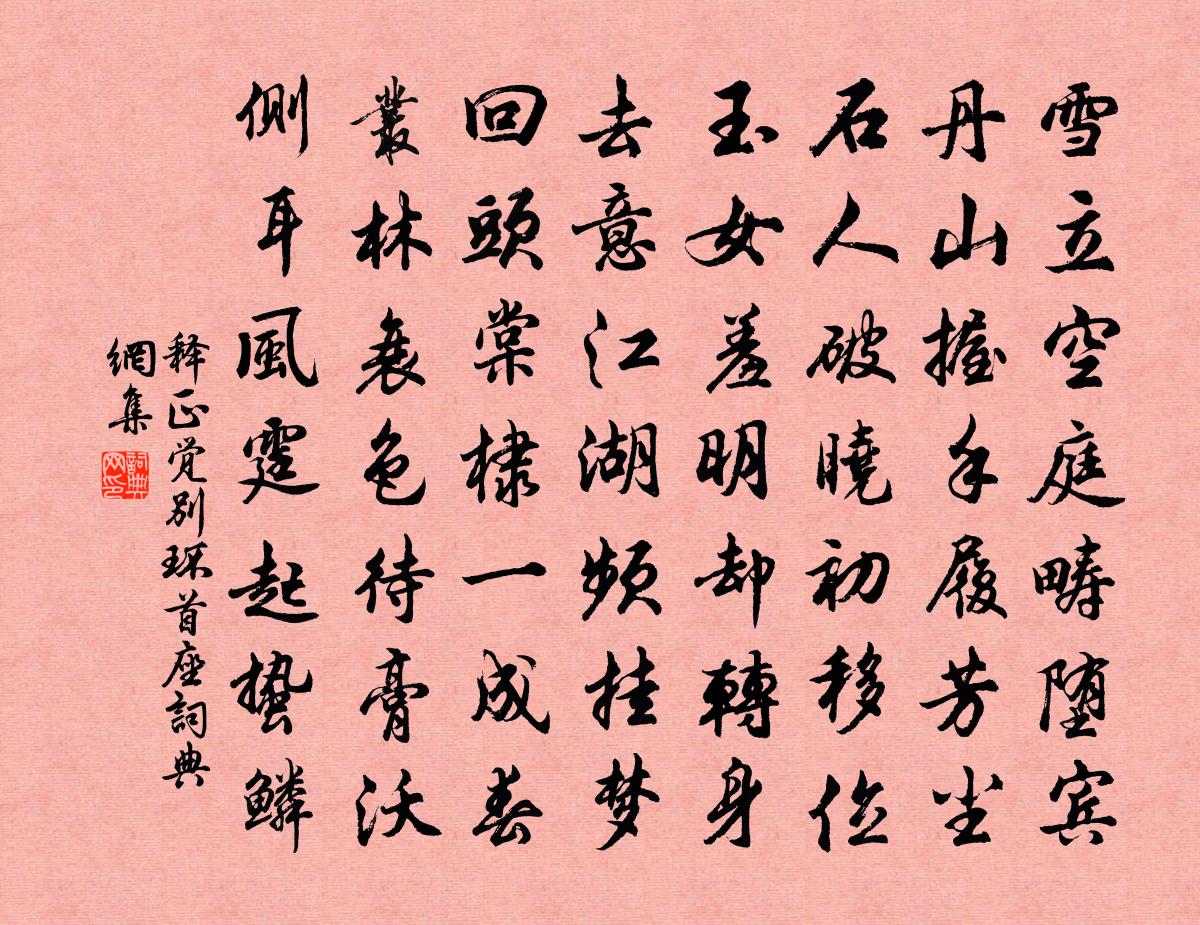 雪立空庭畴堕宾
丹山握手履芳尘
石人破曉初移位
玉女羞明却轉身
去意江湖頻挂梦
回頭棠棣一成春
叢林衰色待膏沃
側耳風霆起蛰鱗
释正觉别琛首座詞典
網集
詞典
网印